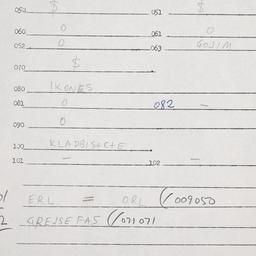 050 $ 051 $
060 0 061 0
052 0 063 GOJIM
070 $
080 IKONES
081 0 082 –
090 0
100 KLADBISTCTE
101 – 102 –
01 ERL = ORL (/009050
2 GREJSEFAS (/071071